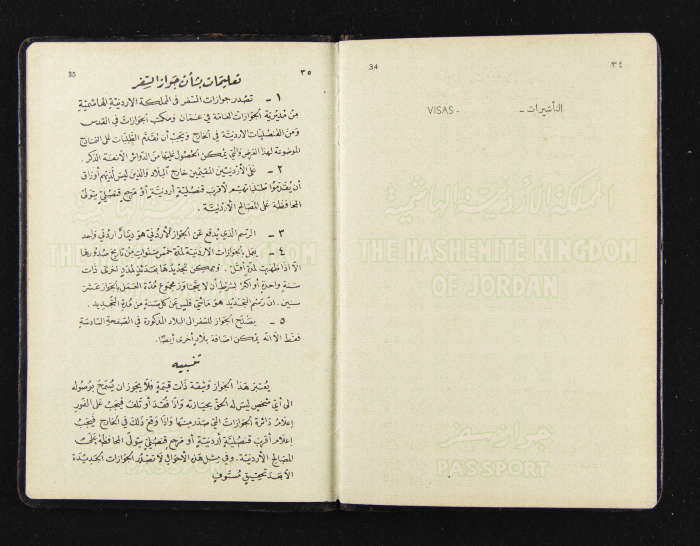 35
٣٥
تعليمات بشأن جواز السفر
١ - تصدر جوازات السفر في المملكة الاردنية الهاشمية
من مديرية الجوازات العامة في عمان ومكتب الجوازات في القدس
ومن القنصليات الاردنية في الخارج ويجب أن تقدم الطلبات على النماذج
الموضوعة لهذا الغرض والتي يمكن الحصول عليها من الدوائر الآنفة الذكر .
٢ - على الأردنيين المقيمين خارج البلاد والذين ليس لديهم أوراق
أن يقدموا طلباتهم لأقرب قنصلية أردنية أو مرجع قنصلي يتولى
المحافظة على المصالح الأردنية .
٣ - الرسم الذي يدفع عن الجواز الأردني هو دينار اردني واحد
٤ - يعمل بالجوازات الاردنية لمدة خمس سنوات من تاريخ صدورها
الا اذا اعطيت لمدة أقل . ويمكن تجديدها بعدئذ لمدد اخرى ذات
سنة واحدة أو اكثر بشرط أن لا يتجاوز مجموع مدة العمل بالجواز عشر
سنين . ان رسم التجديد هو مائتي فلس عن كل سنة من مدة التجديد .
٥ - يصلح الجواز للسفر الى البلاد المذكورة في الصفحة السادسة
فقط الا انه يمكن اضافة بلاد أخرى أيضا .
تنبيه
يعتبر هذا الجواز وثيقة ذات قيمة فلا يجوز ان يسمح بوصوله
الى أي شخص ليس له الحق بحيازته واذا فقد أو تلف فيجب على الفور
إعلام دائرة الجوازات التي صدر منها واذا وقع ذلك في الخارج فيجب
إعلام أقرب قنصلية أردنية أو مرجع قنصلي يتولى المحافظة على
المصالح الأردنية . وفي مثل هذه الاحوال لا تصدر الجوازات الجديدة
الا بعد تحقيق مستوف
34
٣٤
VISAS -
التأشيرات -
المملكة الأردنية الهاشمية
THE HASHEMITE KINGDOM
OF JORDAN
جواز سفر
PASSPORT